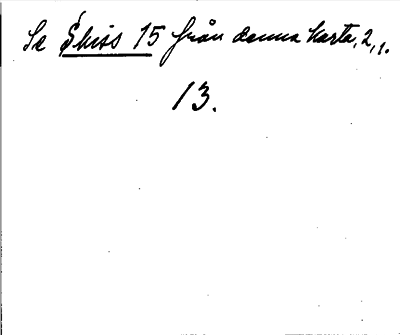 Se Skiss 15 från denna karta, 2,1.
13.